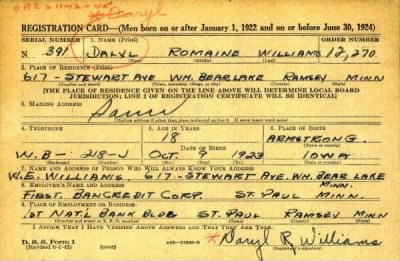 ORES 11-12-45
*Daryl
REGISTRATION CARD—(Men born on or after January 1, 1922 and on or before June 30, 1924)
SERIAL NUMBER 1. NAME (Print) ORDER NUMBER
N 391 DALYL ROMAINE WILLIAMS 12,270
(First) (Middle) (Last)
2. PLACE OF RESIDENCE (Print)
617- STEWART AVE WH. BEAR LAKE RAMSEY MINN
[THE PLACE OF RESIDENCE GIVEN ON THE LINE ABOVE WILL DETERMINE LOCAL BOARD
JURISDICTION; LINE 2 OF REGISTRATION CERTIFICATE WILL BE IDENTICAL]
3. MAILING ADDRESS
Same
4. TELEPHONE 5. AGE IN YEARS 6. PLACE OF BIRTH
18 ARMSTRONG
DATE OF BIRTH
W.B- 218-J OCT 9 1923 IOWA
7. NAME AND ADDRESS OF PERSON WHO WILL ALWAYS KNOW YOUR ADDRESS
W.E. WILLIAMS. 617-STEWART AVE. WH. BEAR LAKE
8. EMPLOYER'S NAME AND ADDRESS MINN.
FIRST. BANCREDIT CORP. ST PAUL MINN.
9. PLACE OF EMPLOYMENT OR BUSINESS
1ST NAT'L BANK BLDG ST. PAUL RAMSEY MINN
I AFFIRM THAT I HAVE VERIFIED ABOVE ANSWERS AND THAT THEY ARE TRUE.
D. S. S. Form 1 *Daryl R. Williams
(Revised 6-1-42)